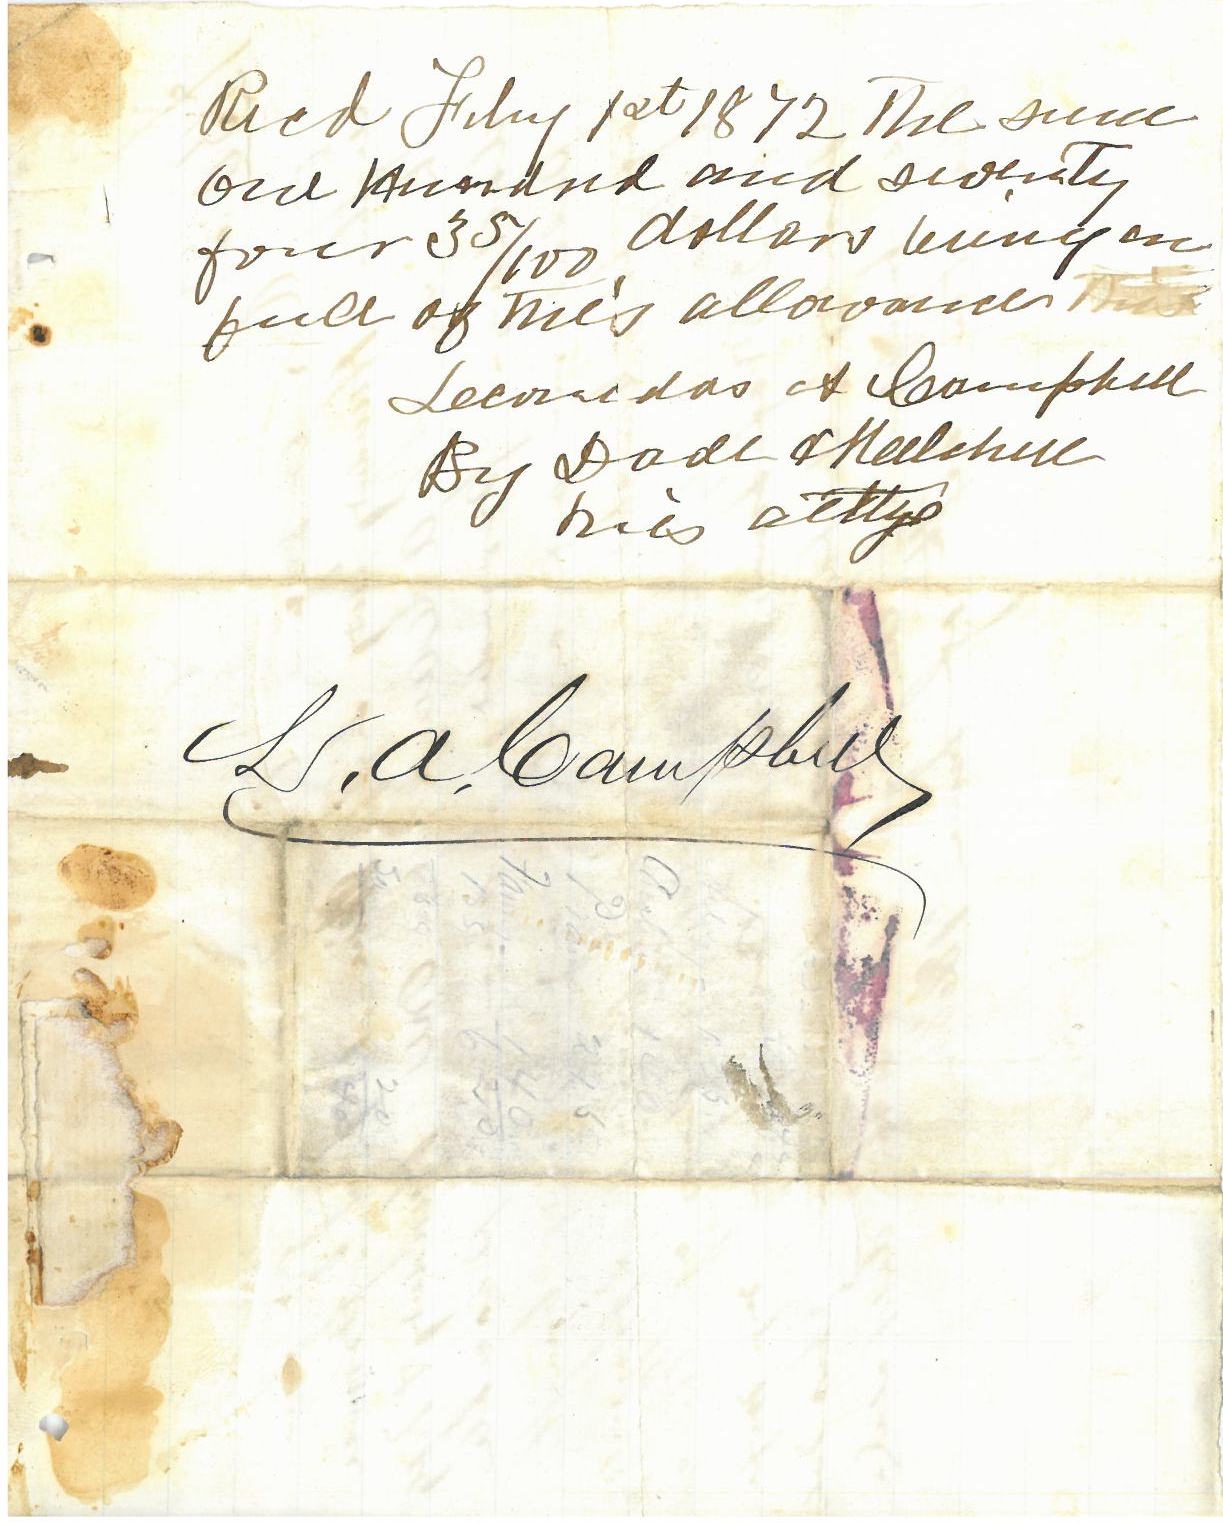 Recd Feby 1st 1872 The sum
One Hundred and seventy
four 35/100 dollars being in
full of this allowance this
Leonidas A Campbell
By Dade & Mitchell
his attys
L. A. Campbell